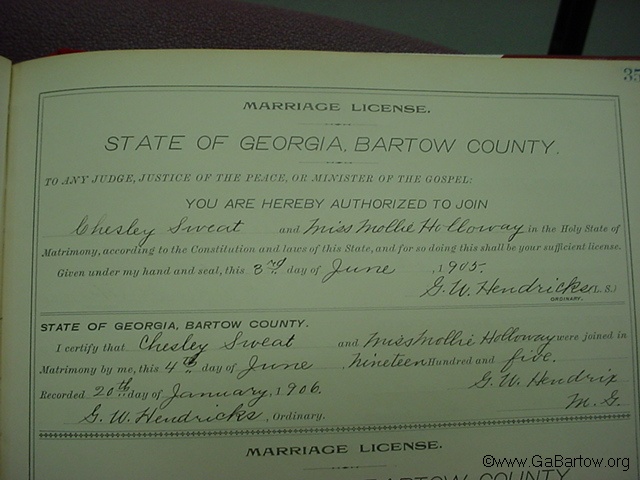 35
MARRIAGE LICENSE.
STATE OF GEORGIA, BARTOW COUNTY.
TO ANY JUDGE, JUSTICE OF THE PEACE, OR MINISTER OF THE GOSPEL:
YOU ARE HEREBY AUTHORIZED TO JOIN
Chesley Sweat and Miss Mollie Holloway in the Holy State of
Matrimony, according to the Constitution and laws of this State, and for so doing this shall be your sufficient license.
Given under my hand and seal, this 3rd day of June, 1905.
G. W. Hendricks (L. S.)
ORDINARY.
STATE OF GEORGIA, BARTOW COUNTY.
I certify that Chesley Sweat and Miss Mollie Holloway were joined in
Matrimony by me, this 4th day of June, Nineteen Hundred and five.
Recorded 20th day of January, 1906. G. W. Hendrix
G. W. Hendricks, Ordinary. M. G.
MARRIAGE LICENSE.
BARTOW COUNTY
©www.GaBartow.org